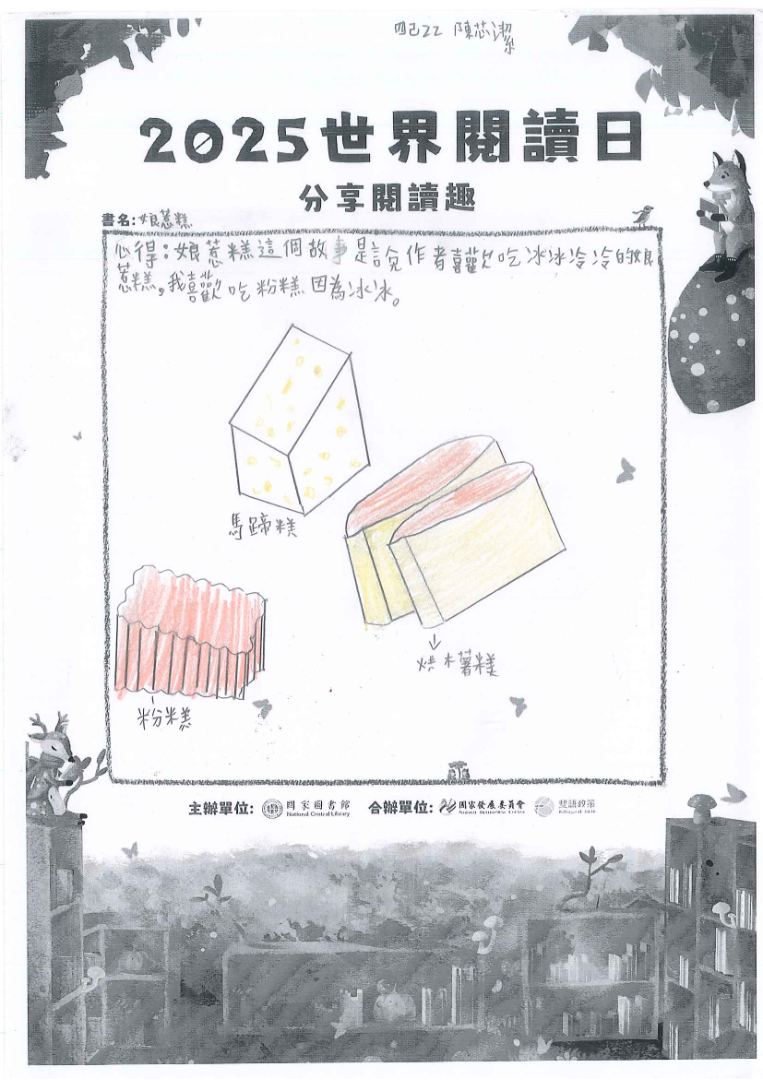 四己22 陳芯潔
2025世界閱讀日
分享閱讀趣
書名:娘惹糕
心得:娘惹糕這個故事是說作者喜歡吃冰冰冷冷的娘
惹糕,我喜歡吃粉糕因為冰冰。
馬蹄糕
烘木薯糕
粉糕
主辦單位: 國家圖書館 National Central Library 合辦單位: 國家發展委員會 National Development Council 雙語政策